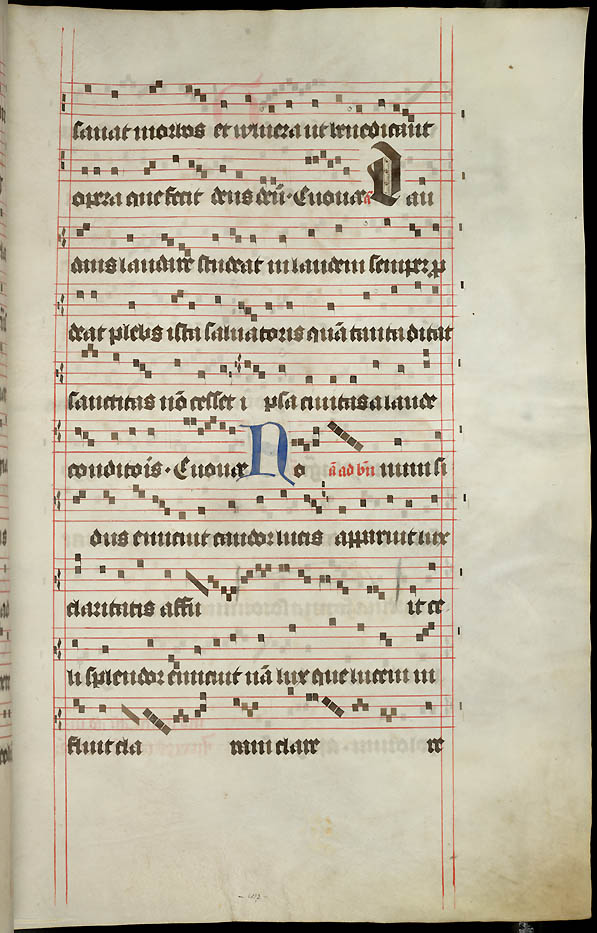 sanat morbos et wlnera ut benedicant
opera que fecit deus deū · Euouae a au
laudare studeat in laudem semper
deat plebs ista saluatoris quā tanta ditat
sanctitas nō cesset i psa ciuitas a laude
conditoris · Euouae No ā ad bn̄ uum si
dus emicuit candor lucis apparuit lux
claritatis affu it ce
li splendor emicuit nā lux que lucem in
fluit cla clare re